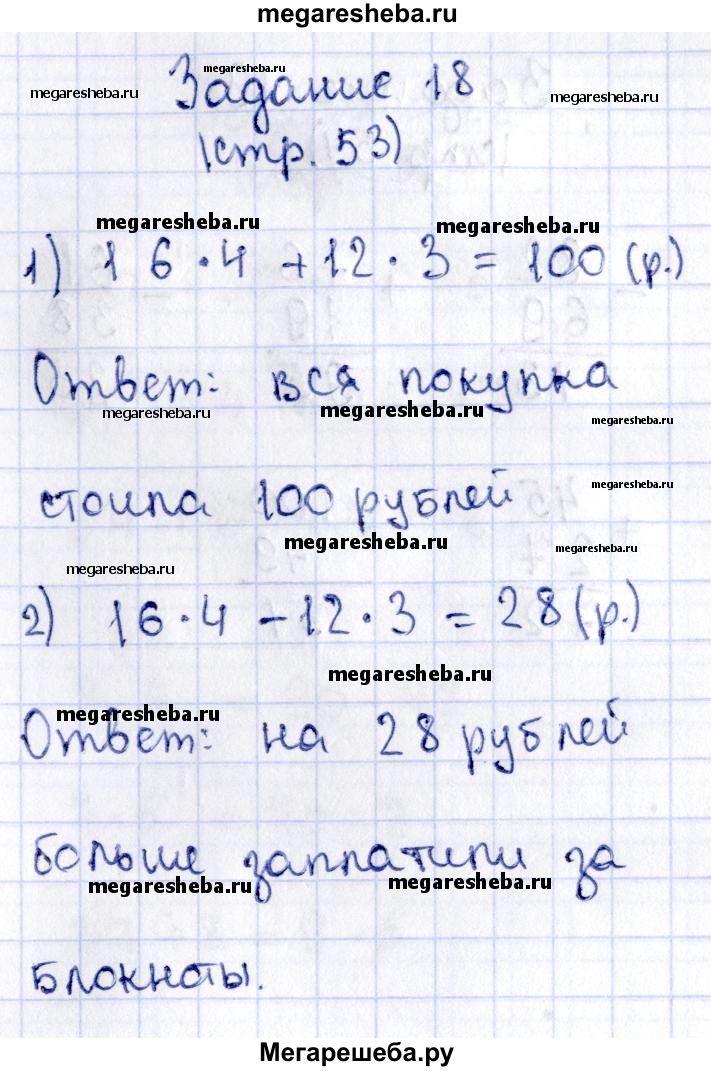 megaresheba.ru
megaresheba.ru
megaresheba.ru Задание 18 megaresheba.ru
(стр. 53)
megaresheba.ru megaresheba.ru
1) 16·4+12·3=100(р.)
Ответ: вся покупка
megaresheba.ru megaresheba.ru megaresheba.ru
стоила 100 рублей
megaresheba.ru
megaresheba.ru
megaresheba.ru
megaresheba.ru
2) 16·4-12·3=28(р.)
megaresheba.ru
megaresheba.ru
Ответ: на 28 рублей
больше заплатили за
megaresheba.ru megaresheba.ru
блокноты.
Мегарешеба.ру